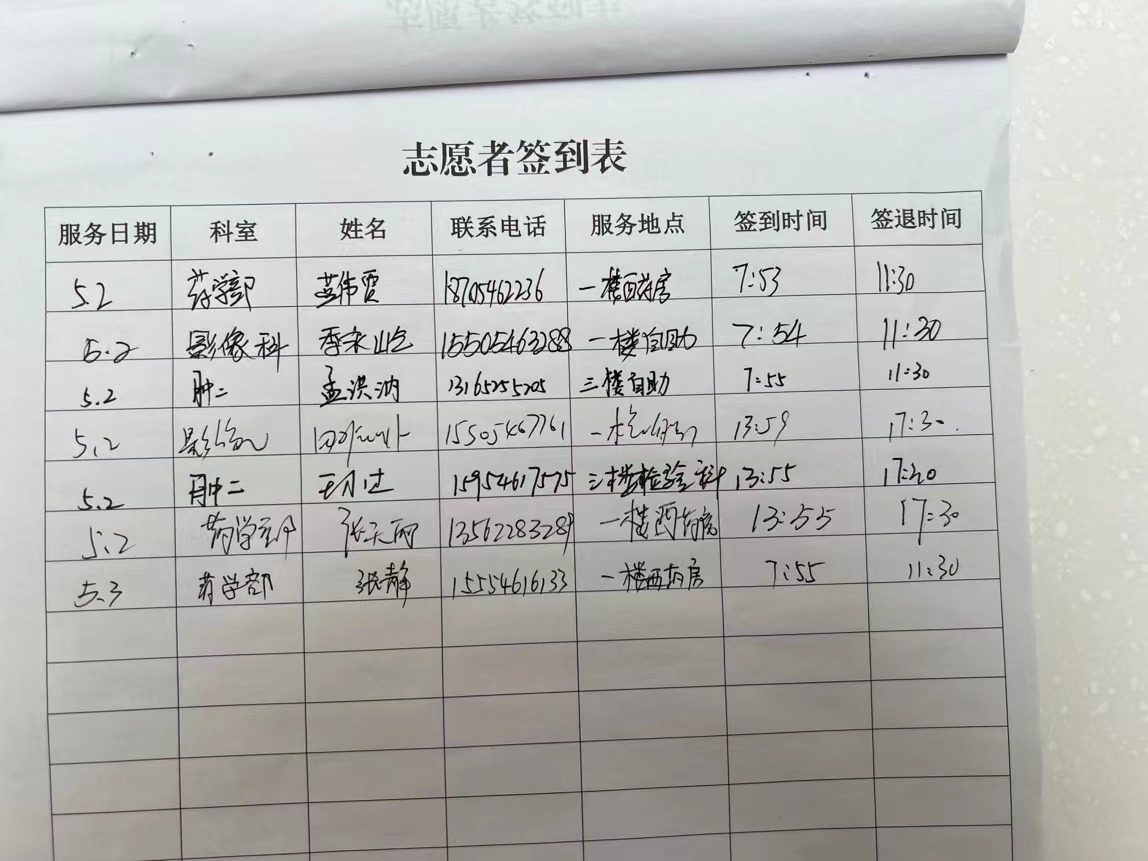 志愿者签到表
服务日期 科室 姓名 联系电话 服务地点 签到时间 签退时间
5.2 药学部 18705462236 一楼西药房 7:53 11:30
5.2 影像科 15505463288 一楼自助 7:54 11:30
5.2 肿二 孟洪汭 13165255205 三楼自助 7:55 11:30
5.2 影像 15505467761 一楼 13:59 17:30
5.2 肿二 15954617575 三楼检验科 13:55 17:20
5.2 药学部 张天丽 13562283289 一楼西药房 13:55 17:30
5.3 药学部 张静 15554616133 一楼西药房 7:55 11:30